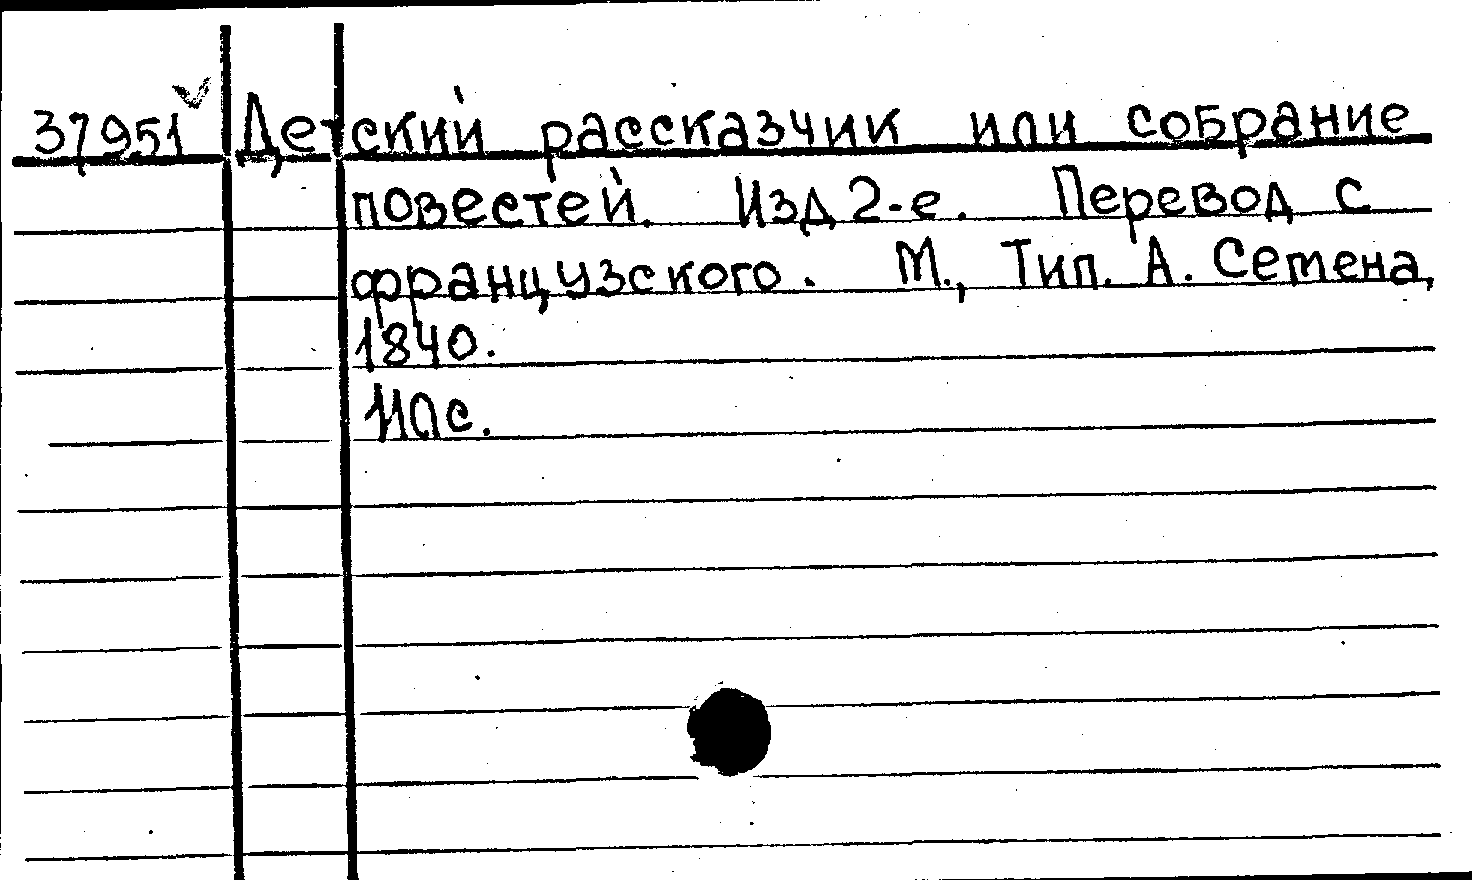 37951 Детский рассказчик или собрание
повестей. Изд 2-е. Перевод с
французского. М., Тип. А. Семена,
1840.
110с.